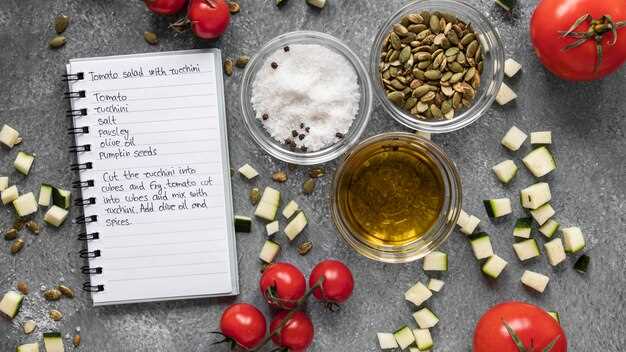 Tomato salad with zucchini
Tomato
zucchini
salt
parsley
olive oil
Pumpkin seeds
Cut the zucchini into
cubes and fry. tomato cut
into cubes and mix with
zucchini. Add olive oil and
spices.